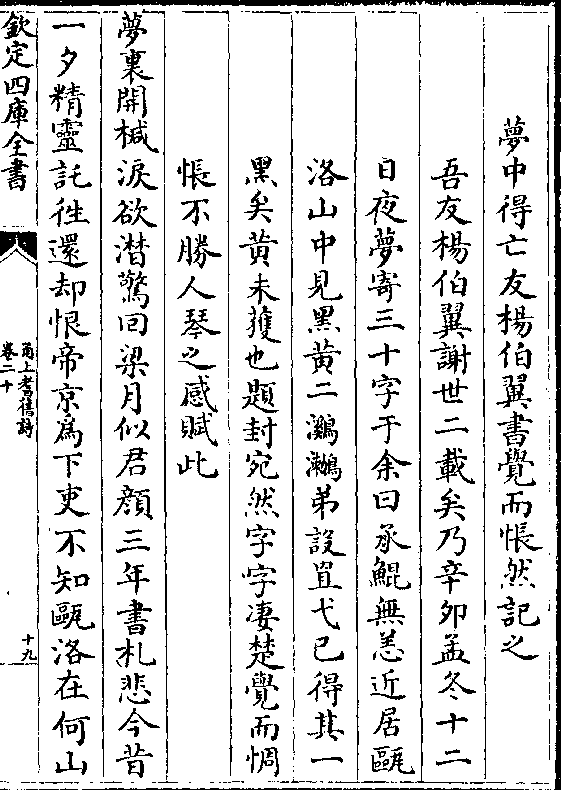 夢中得亡友楊伯翼書覺而悵然記之
吾友楊伯翼謝世二載矣乃辛卯孟冬十二
日夜夢寄三十字于余曰承鯤無恙近居甌
洛山中見黑黃二鸂鶒弟設罝弋已得其一
黑矣黃未獲也題封宛然字字凄楚覺而惆
悵不勝人琴之感賦此
夢裏開椷淚欲潸驚回梁月似君顔三年書札悲今昔
一夕精靈託徃還却恨帝京為下吏不知甌洛在何山
欽定四庫全書
甬上耆舊詩
卷二十
十九